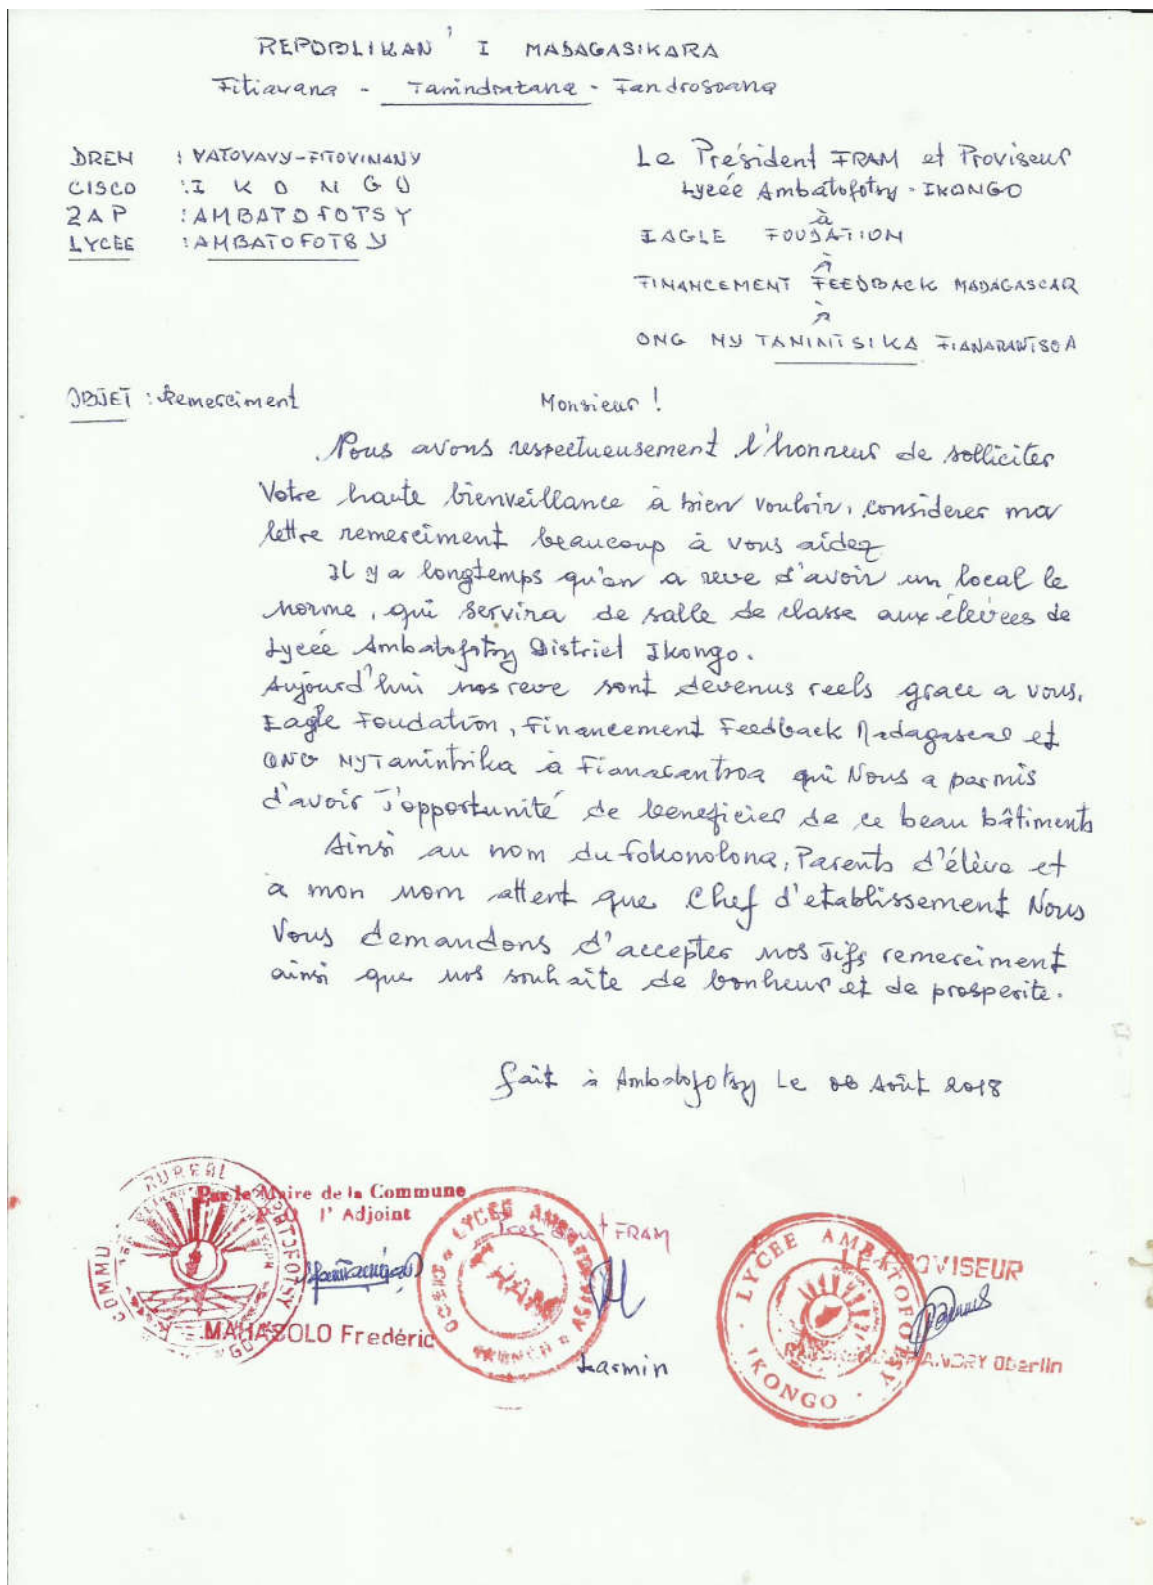 REPOBLIKAN' I MADAGASIKARA
Fitiavana - Tanindrazana - Fandrosoana
DREN : VATOVAVY-FITOVINANY
CISCO : I K O N G O
ZAP : AMBATOFOTSY
LYCEE : AMBATOFOTSY
Le Président FRAM et Proviseur
Lycée Ambatofotsy - IKONGO
à
EAGLE FOUDATION
à
FINANCEMENT FEEDBACK MADAGASCAR
à
ONG NY TANINTSIKA FIANARANTSOA
OBJET : Remerciment
Monsieur !
Nous avons respectueusement l'honneur de solliciter
Votre haute bienveillance à bien vouloir, considerer ma
lettre remerciment beaucoup à vous aidez
Il y a longtemps qu'on a reve d'avoir un local le
norme, qui servira de salle de classe aux élévees de
Lycée Ambatofotsy District Ikongo.
Aujourd'hui nos reve sont devenus reels grace a vous,
Eagle Foudation, Financement Feedback Madagascar et
ONG NY Tanintsika à Fianarantsoa qui Nous a parmis
d'avoir l'opportunité de beneficier de ce beau bâtiments
Ainsi au nom du fokonolona, Parents d'élève et
à mon nom attent que Chef d'etablissement Nous
Vous demandons d'accepter nos vifs remerciment
ainsi que nos souhaite de bonheur et de prosperite.
fait à Ambatofotsy Le 06 Août 2018
COMMU RURAL AMBATOFOTSY
Par le Maire de la Commune
P.O l'Adjoint
MAHASOLO Frederic
LYCEE AMBATOFOTSY
FRAM
FRAM
Larmin
LYCEE AMBATOFOTSY
IKONGO
LE PROVISEUR
Oberlin